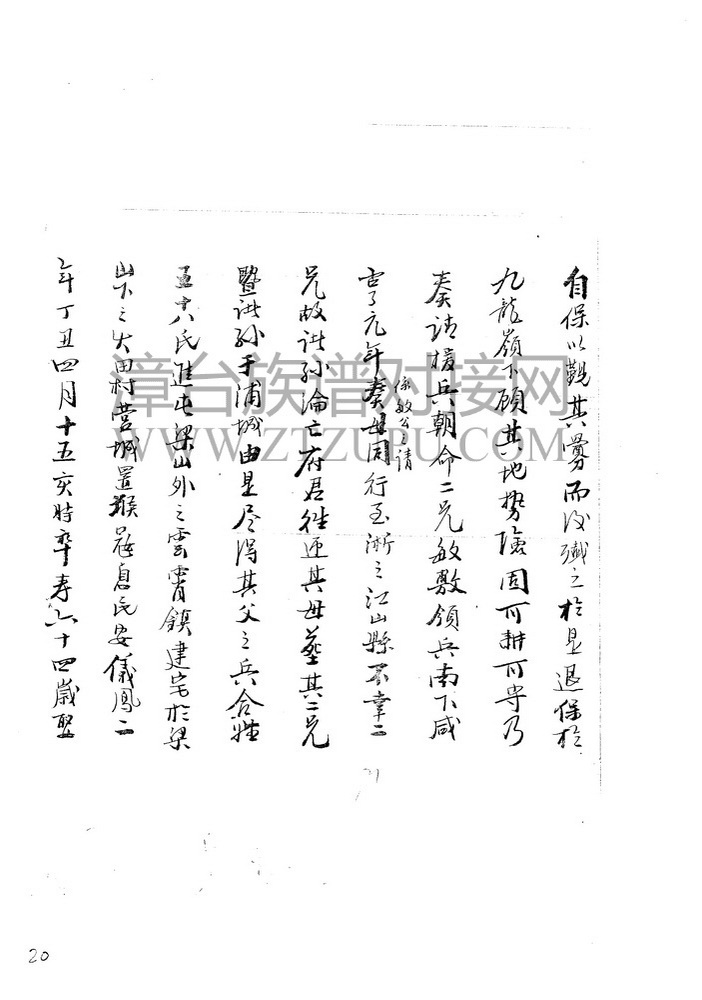 自保以觀其釁而後殲之於是退保於
九龍嶺下顧其地勢險固可耕可守乃
奏請援兵朝命二兄敏敷領兵南下咸
亨元年奏母同行至浙之江山縣不幸二
係敏公之請
兄故諸孫淪亡府君往迎其母葬其二兄
暨諸孫于浦城由是尽得其父之兵合姓
五十八氏進屯梁山外之雲霄鎮建宅於梁
山下之火田村營城置
息民安儀鳳二
年丁丑四月十五亥時卒寿六十四歲娶
漳台族谱对接网
WWW.ZTZUPU.COM
20